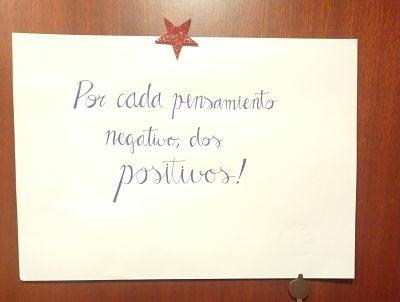 Por cada pensamiento
negativo, dos
positivos!